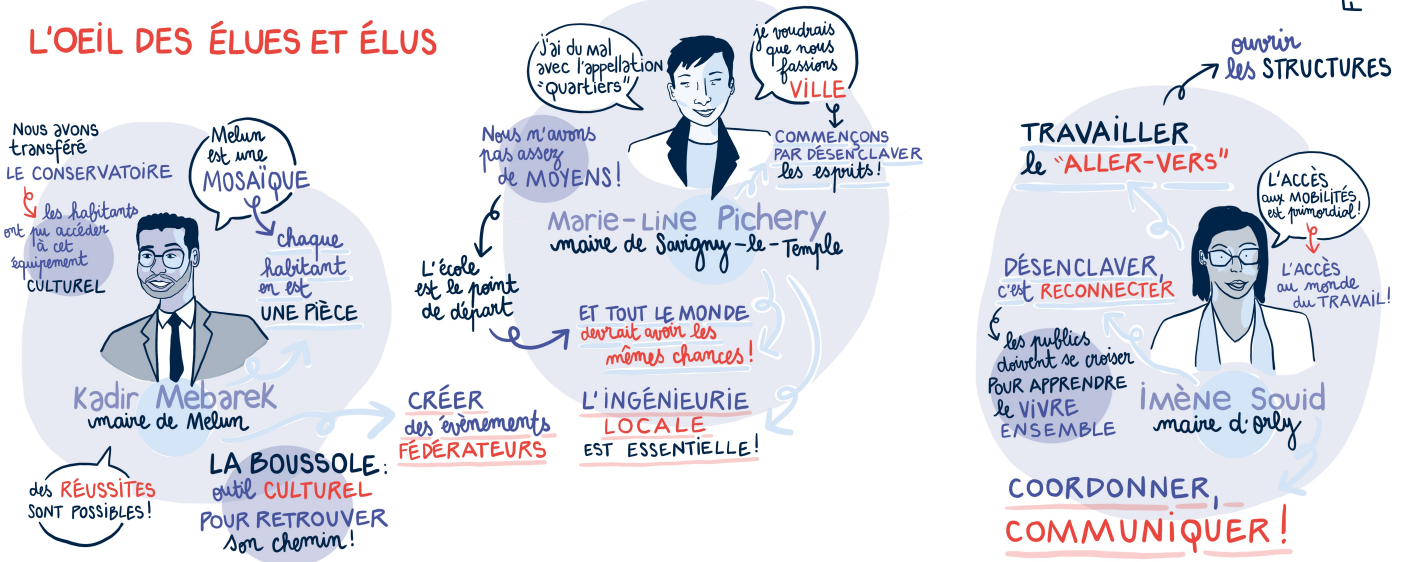 L'OEIL DES ÉLUES ET ÉLUS
Nous avons
transféré
LE CONSERVATOIRE
les habitants
ont pu accéder
à cet
équipement
CULTUREL
Melun
est une
MOSAÏQUE
chaque
habitant
en est
UNE PIÈCE
Kadir Mebarek
maire de Melun
des RÉUSSITES
SONT POSSIBLES!
LA BOUSSOLE:
outil CULTUREL
POUR RETROUVER
son chemin!
CRÉER
des évènements
FÉDÉRATEURS
J'ai du mal
avec l'appellation
"quartiers"
je voudrais
que nous
fassions
VILLE
COMMENÇONS
PAR DÉSENCLAVER
les esprits!
Nous n'avons
pas assez
de MOYENS!
Marie-Line Pichery
maire de Savigny-le-Temple
L'école
est le point
de départ
ET TOUT LE MONDE
devrait avoir les
mêmes chances!
L'INGÉNIERIE
LOCALE
EST ESSENTIELLE!
ouvrir
les STRUCTURES
TRAVAILLER
le "ALLER-VERS"
L'ACCÈS
aux MOBILITÉS
est primordial!
L'ACCÈS
au monde
du TRAVAIL!
DÉSENCLAVER,
c'est RECONNECTER
les publics
doivent se croiser
POUR APPRENDRE
le VIVRE
ENSEMBLE
Imène Souid
maire d'orly
COORDONNER,
COMMUNIQUER!